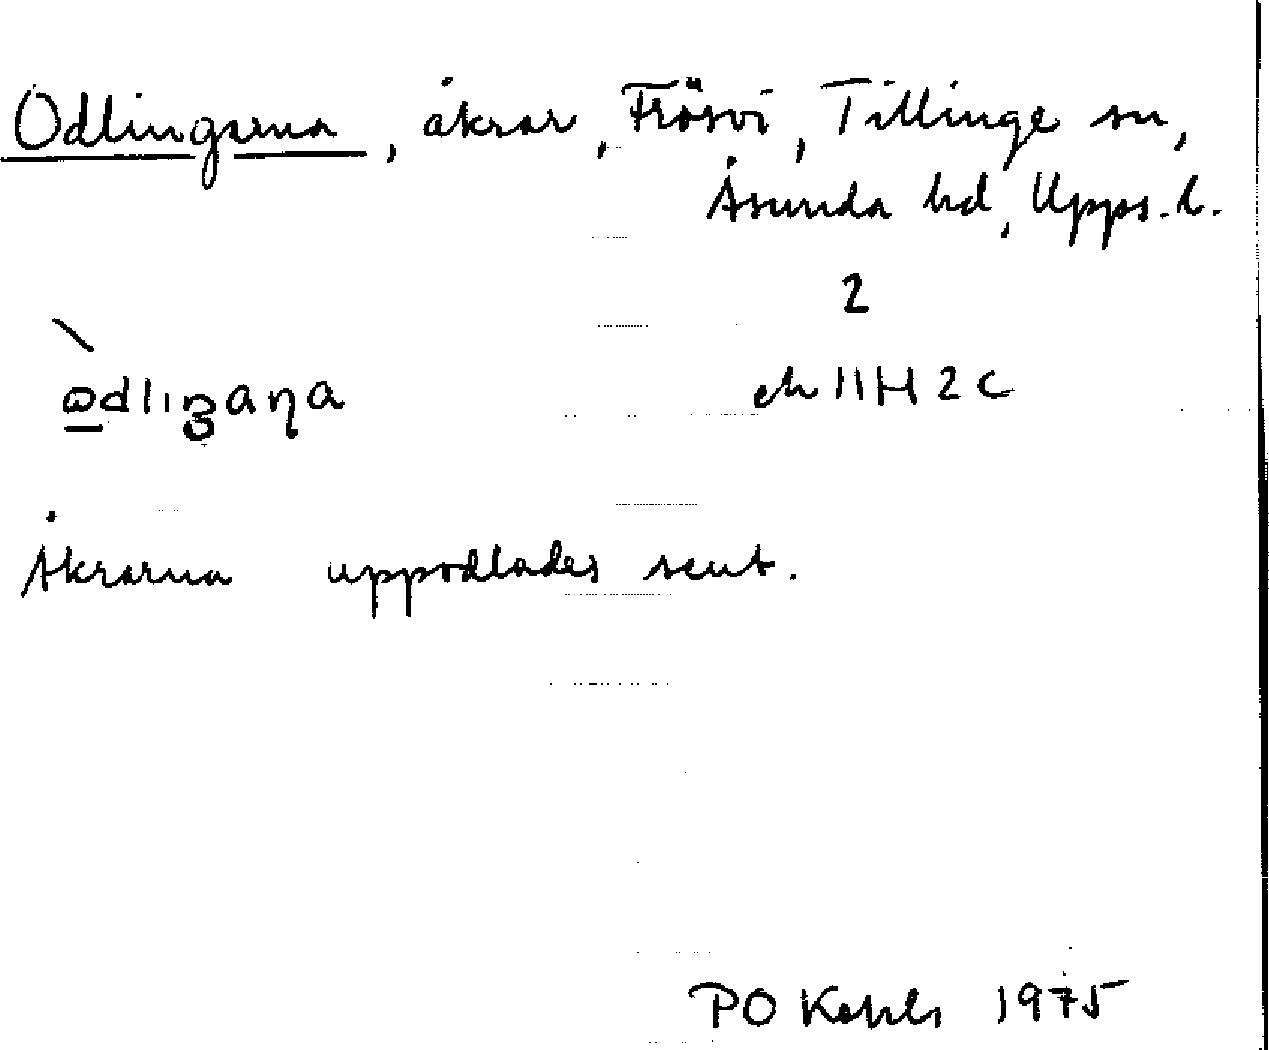 Odlingarna, åkrar, Frösvi, Tillinge sn,
Åsunda hd, Upps. l.
2
ek 11H 2c
Åkrarna uppodlades sent.
PO 1975